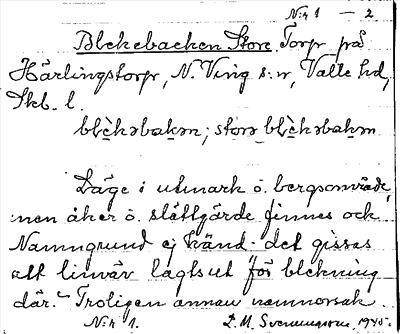 N:r 1 — 2
Blekebacken Store. Torp på
Härlingstorp, N. Ving s:n, Valle hd,
Skb. l.
blèkəbakən; storə blèkəbakən
Läge i utmark o. bergsområde,
men åker o. slättgärde finnes ock.
Namngrund ej känd. det gissas
att linväv lagts ut för blekning
där. Troligen annan namnorsak.
N:r 1. L. M. Svenungsson, 1945.